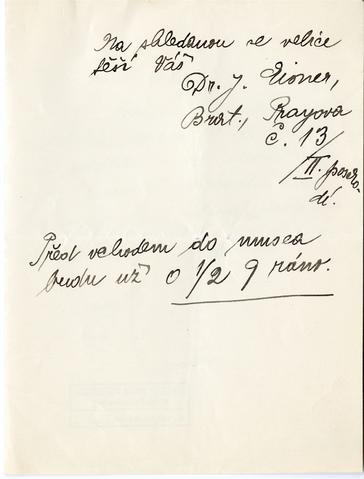 Na shledanou se velice
těší Váš
Dr. J. Eisner,
Brat., Rayova
č. 13/
/II. poscho-
dí.
Před vchodem do musea
budu už o 1/2 9 ráno.